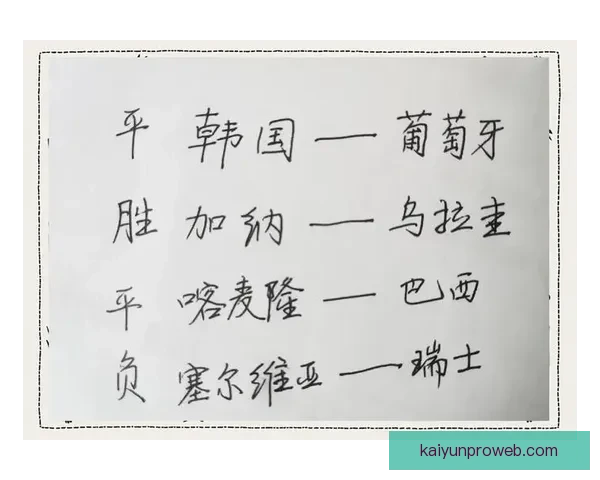 平 韩国 — 葡萄牙
胜 加纳 — 乌拉圭
平 喀麦隆 — 巴西
负 塞尔维亚 — 瑞士
kaiyunproweb.com